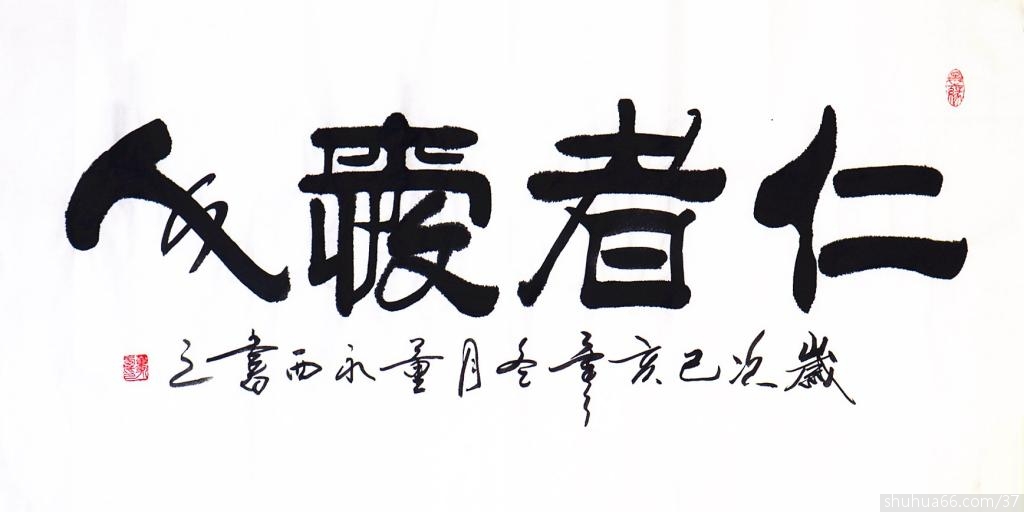 仁者愛人
歲次己亥年冬月董永西書之
shuhua66.com/37